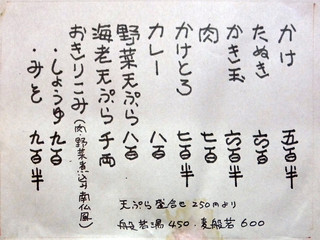 かけ 五百半
たぬき 六百
かき玉 六百半
肉 七百
かけとろ 七百半
カレー 八百
野菜天ぷら 八百
海老天ぷら 千両
おきりこみ(肉・野菜煮込み南仏風)
・しょうゆ 九百
・みそ 九百半
天ぷら盛合せ 250円より
般若湯 450. 麦般若 600